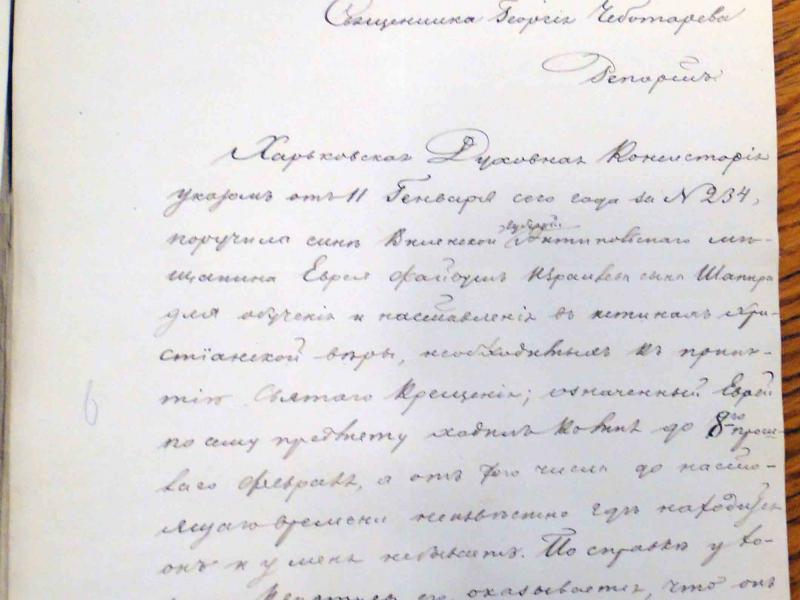 Священника Георгія Чеботарева
Рапортъ.
Харьковская Духовная Консисторія
указомъ отъ 11 Генваря сего года за № 234,
поручила Виленской губерніи мѣ-
щанина Еврея сына Шапира
для обученія и наставленія въ истинахъ Хри-
стіанской вѣры, необходимыхъ къ приня-
тію Святаго Крещенія; означенный Еврей
по сему предмету ходилъ ко мнѣ до 8го прош-
лаго Февраля, а отъ того числа до насто-
ящаго времени неизвѣстно гдѣ находится
онъ и у меня небываетъ. По справкѣ у
его оказывается, что онъ